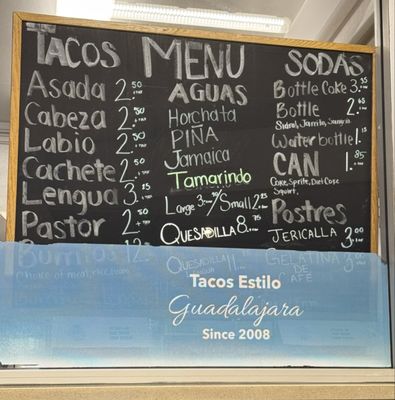 TACOS
Asada 2.50 + TAX
Cabeza 2.50 + TAX
Labio 2.50 + TAX
Cachete 2.50 + TAX
Lengua 3.15 + TAX
Pastor 2.50 + TAX
Burritos 12.
Choice of meat, rice, beans
MENU
AGUAS
Horchata
PIÑA
Jamaica
Tamarindo
Large 3. Small 2.
QUESADILLA 8.75
QUESADILLA 11.
SODAS
Bottle Coke 3.
Bottle 2.
Sidral, Jarrito, Sangria
Water bottle 1.15
CAN 1.85
Coke, Sprite, Diet Coke
Squirt,
Postres
JERICALLA 3.00
GELATINA 3.00
DE
CAFE
Tacos Estilo
Guadalajara
Since 2008